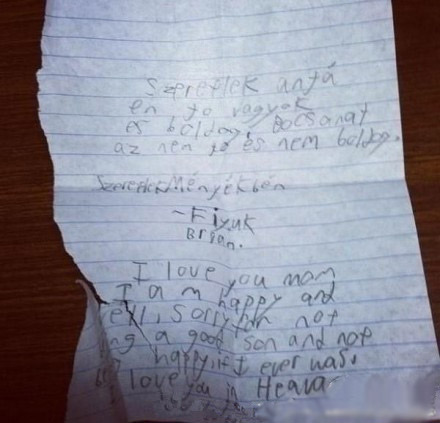 Szeretlek anyá
én jo vagyok
és boldog, Bocsanat
az nem jo és nem boldog.
Szeretlek Ményékbén
~Fiyuk
Brian.
I love you mom
I am happy and
sorry for not
a good son and not
happy if I ever was.
I love you in Heava